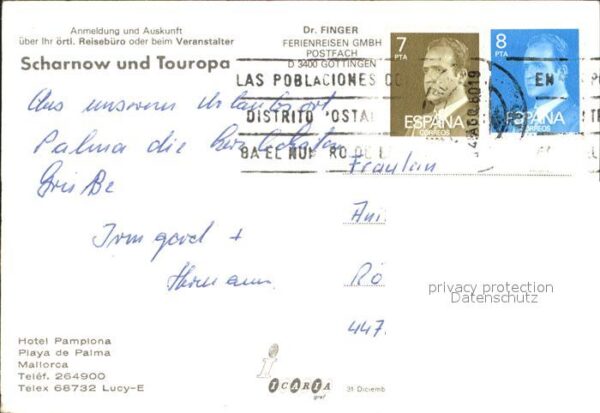 Anmeldung und Auskunft
über Ihr örtl. Reisebüro oder beim Veranstalter
Scharnow und Touropa
Dr. FINGER
FERIENREISEN GMBH
POSTFACH
D 3400 GÖTTINGEN
7
PTA
ESPAÑA
CORREOS
8
PTA
ESPAÑA
CORREOS
LAS POBLACIONES CO
EN
DISTRITO POSTAL
GA EL NUM RO DE
Aus unserem Urlaubsort
Palma die herzlichsten
Grüße
Irmgard +
Hermann
Fräulein
Rö
447
privacy protection
Datenschutz
Hotel Pamplona
Playa de Palma
Mallorca
Teléf. 264900
Telex 68732 Lucy-E
i
ICARIA
graf
31 Diciemb